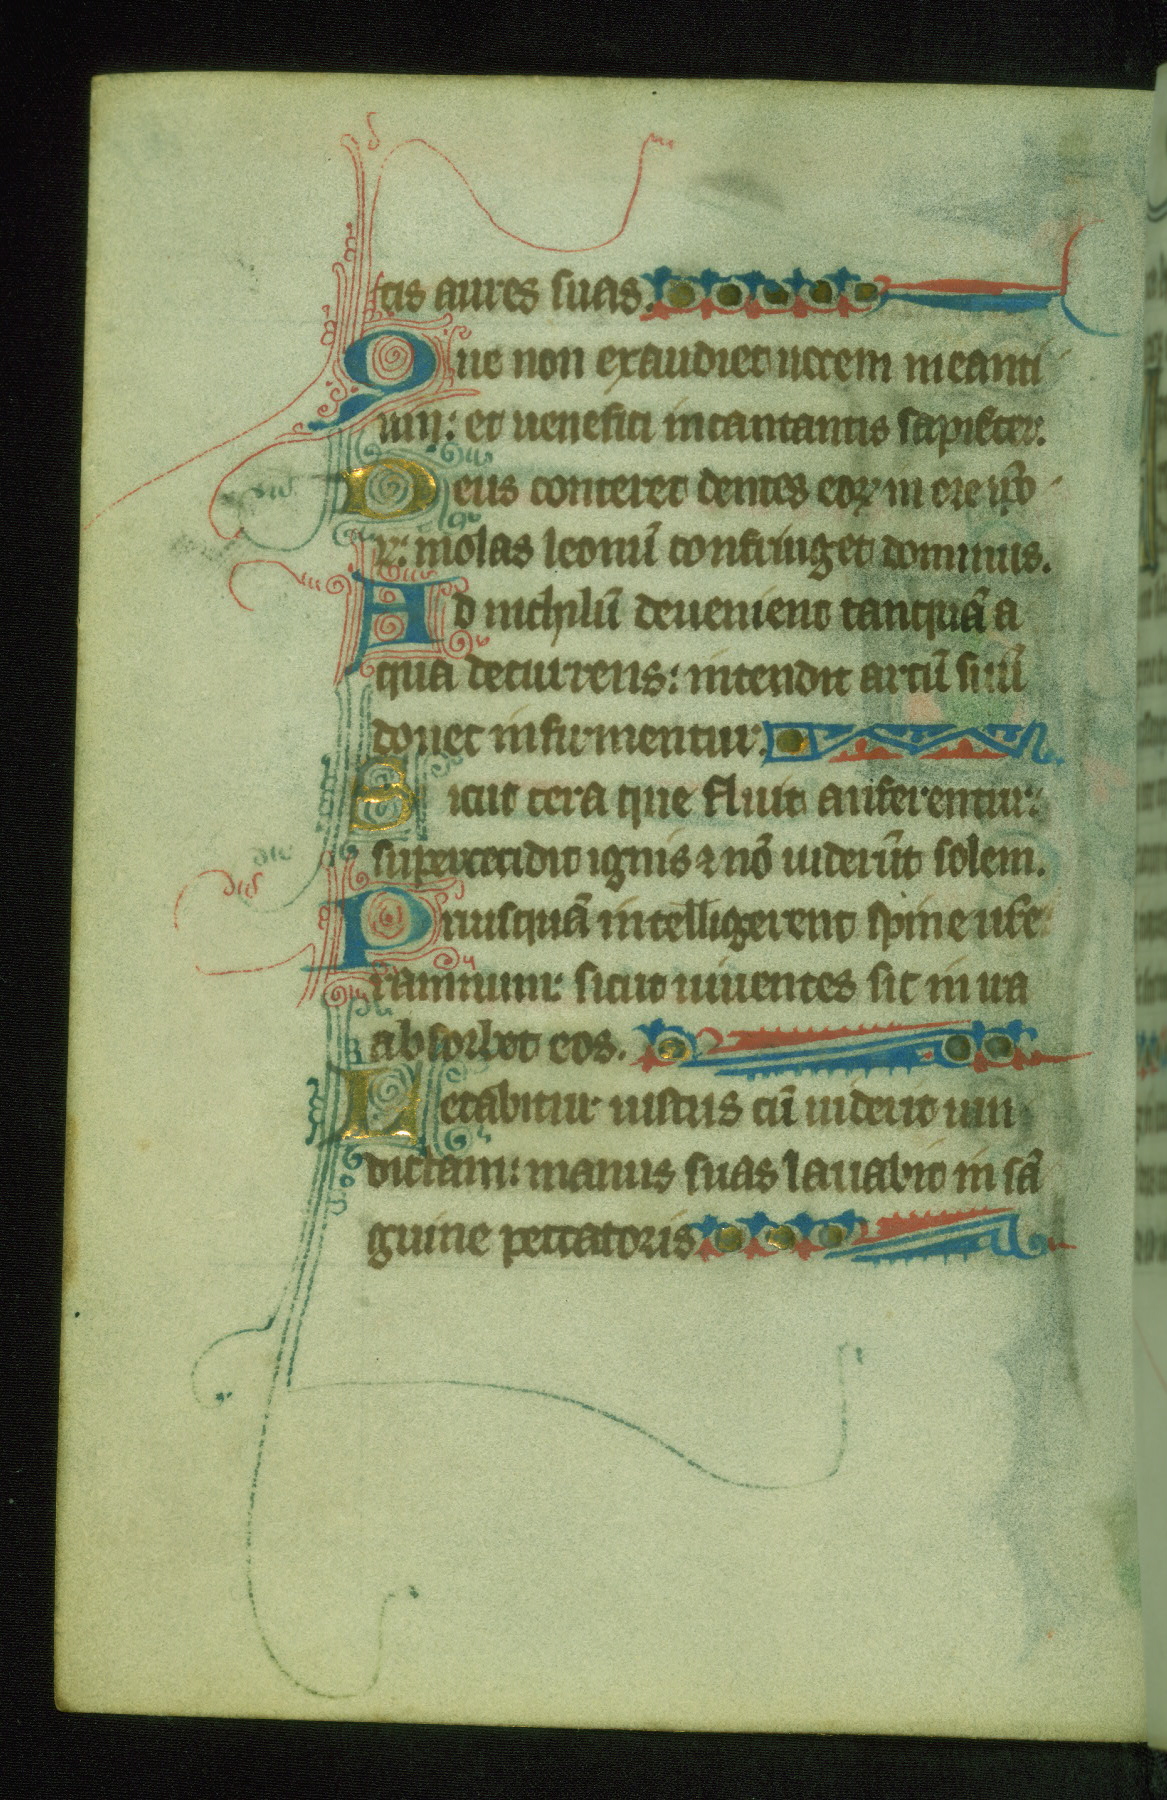 tis aures suas.
Que non exaudiet uocem incanti
um: et uenefici incantantis sapiẽter.
Deus conteret dentes eoꝝ in ore ip̃o
ꝝ: molas leonũ confringet dominus.
Ad nichilũ deuenient tanquã a
qua decurrens: intendit arcũ suũ
donec infirmentur.
Sicut cera que fluit auferentur:
supercecidit ignis ⁊ nõ uiderũt solem.
Priusquã intelligerent spine ur̃e
ramnum: sicut uiuentes sic in ira
absorbet eos.
Letabitur iustus cũ uiderit uin
dictam: manus suas lauabit in sã
guine peccatoris